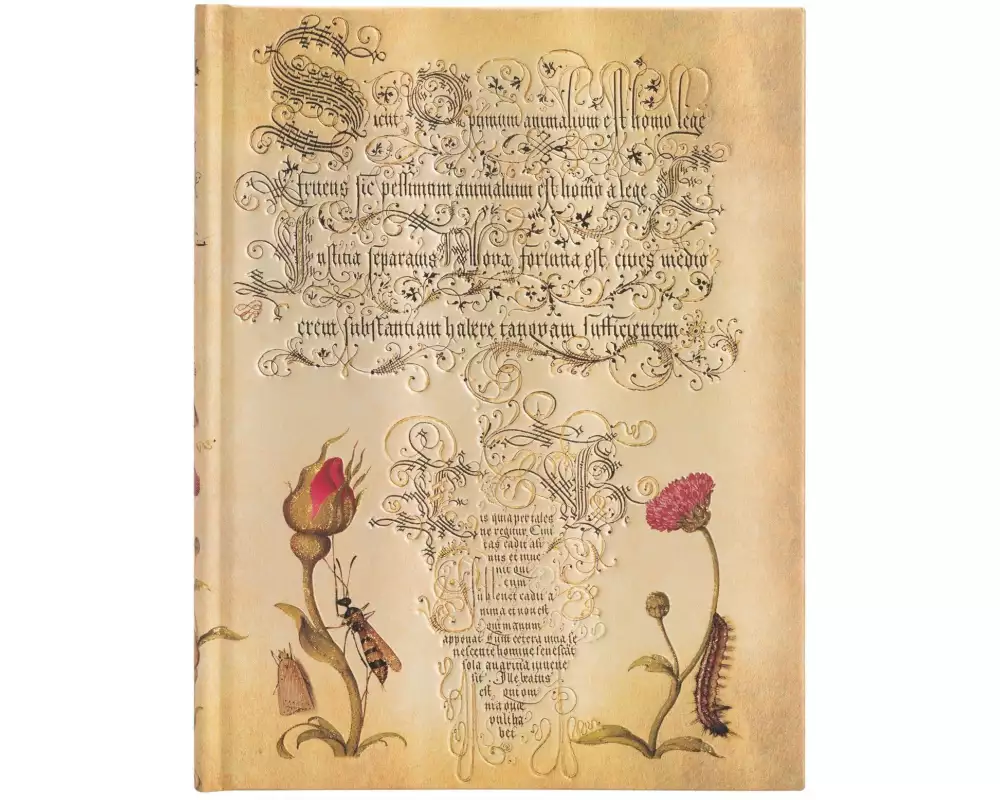 Sicut Optimum animalium est homo lege
fruens sic pessimum animalium est homo a lege Et
Justitia separatus Nova fortuna est cives medio
crem substantiam habere tanquam sufficientem
is quia per tales
ne regitur Civi
tas cadit asi
nus et inve
nit qui
eum
Sublevet cadit a
nima et non est
qui manum
apponat Cum cetera vitia se
nescente homine senescāt
sola avaritia iuvene
sit. Ille beatus
est qui om
nia quae
vult ha
bet.